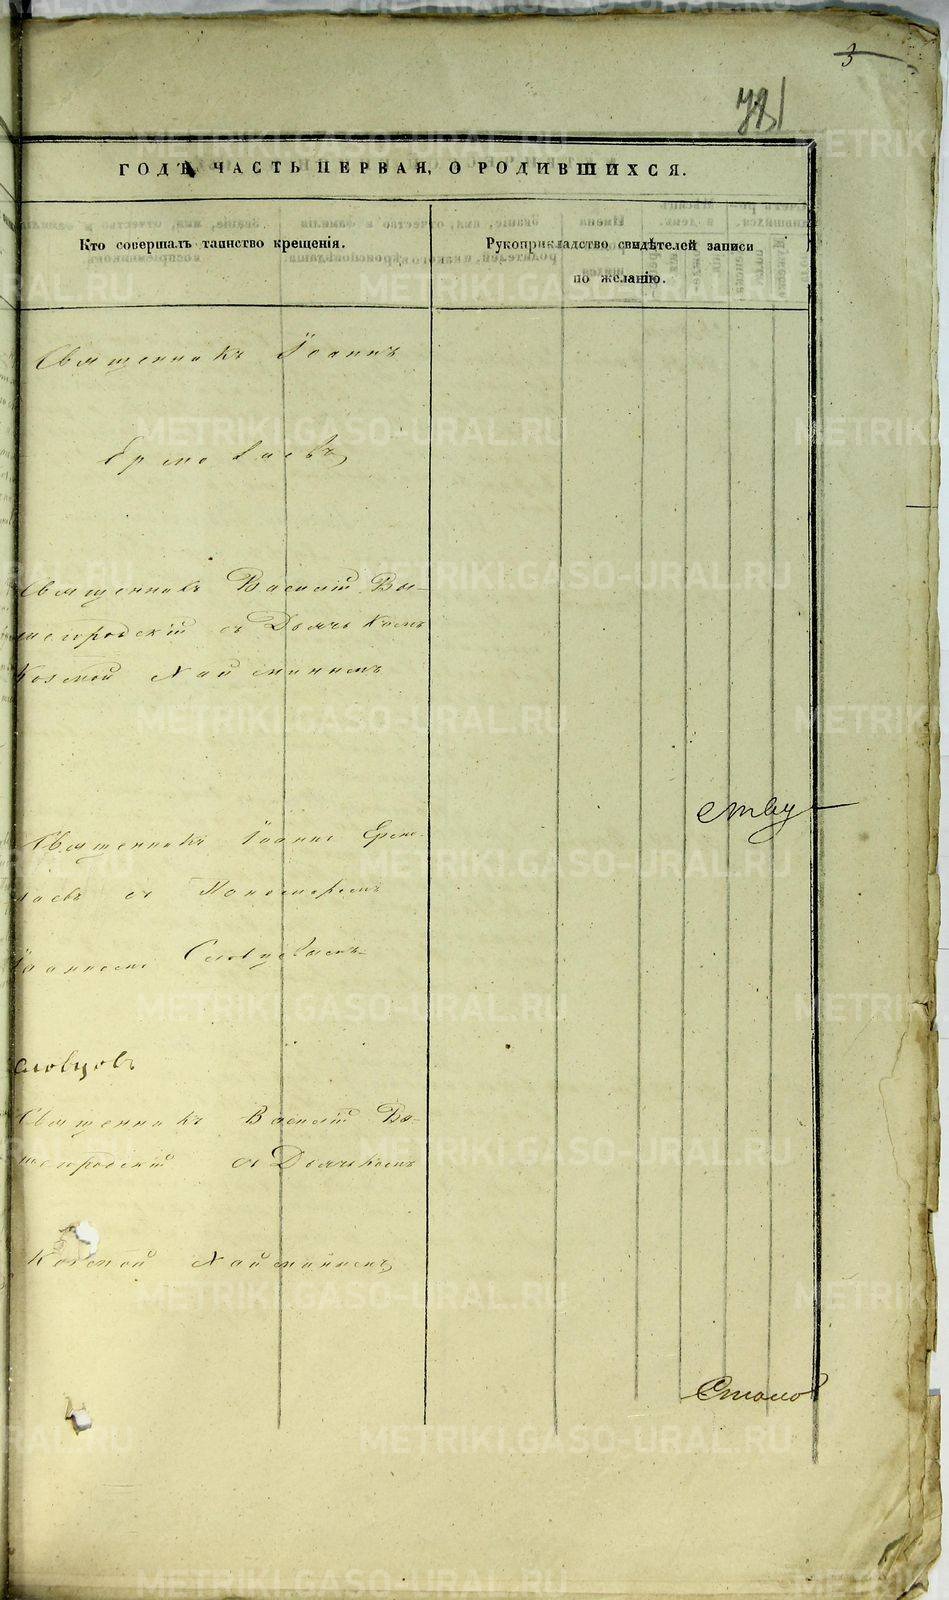 3
ГОДЪ, ЧАСТЬ ПЕРВАЯ, О РОДИВШИХСЯ.
Кто совершалъ таинство крещенія.
Рукоприкладство свидѣтелей записи
по желанію.
Священникъ Іоаннъ
Ермолаевъ
Священникъ Василій Вы-
шегородскій съ Дьячькомъ
Козмой Хайминымъ
Священникъ Іоаннъ Ермо-
лаевъ съ Пономаремъ
Іоанномъ Словцовымъ
ству
словцовъ
Священникъ Василій Вы-
шегородскій съ Дьячькомъ
Козмой Хайминымъ
METRIKI.GASO-URAL.RU